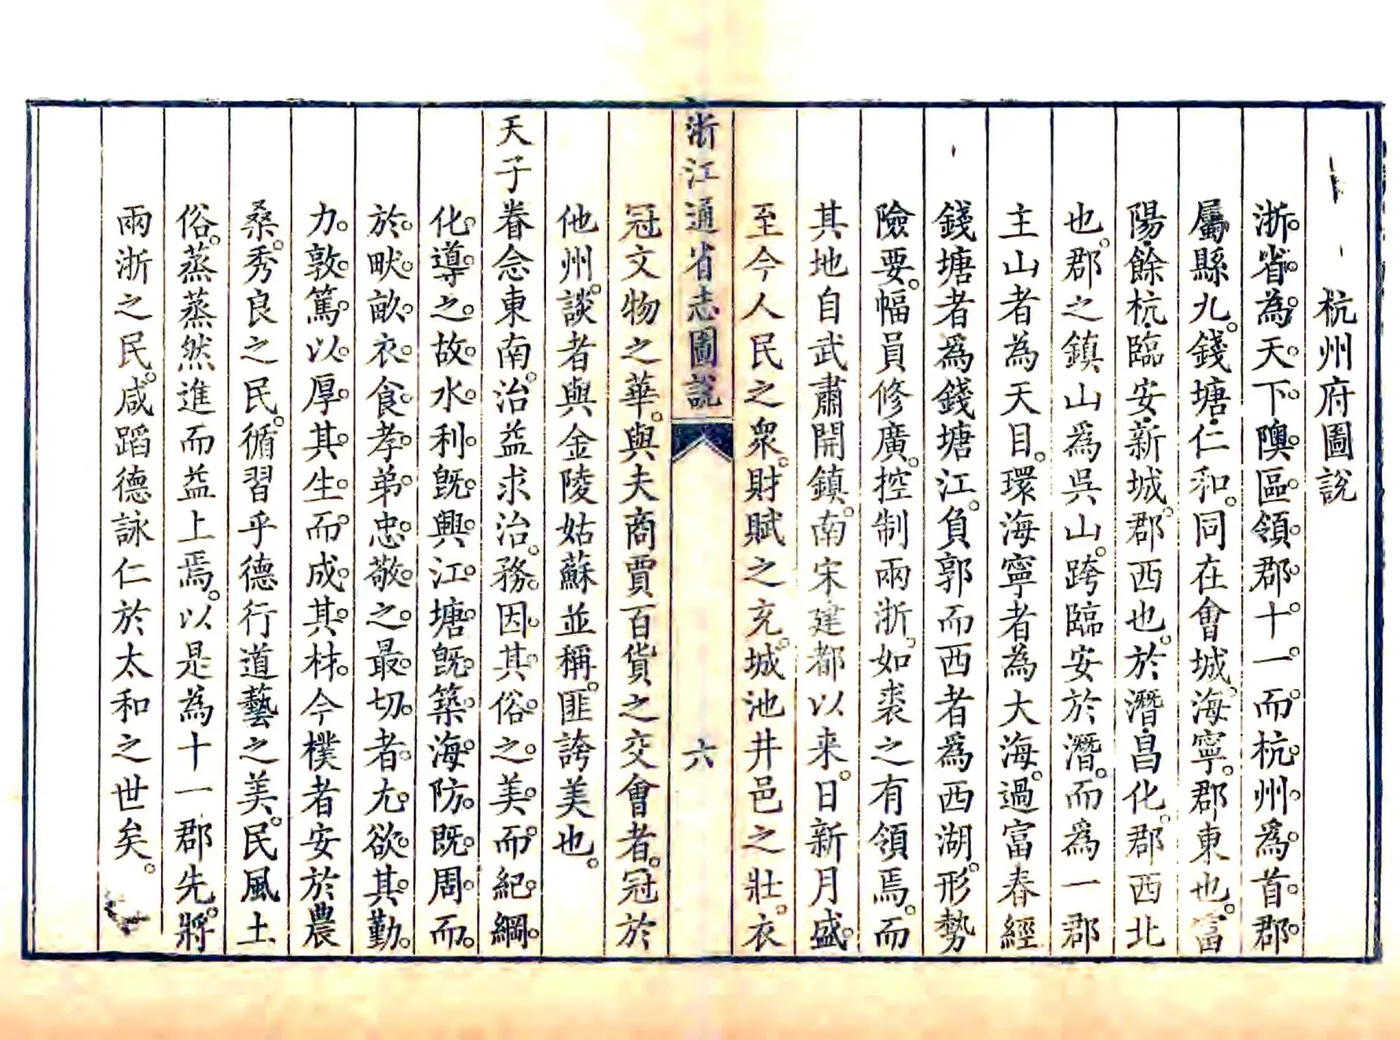 杭州府圖說
浙省為天下隩區領郡十一而杭州爲首郡
屬縣九錢塘仁和同在會城海寧郡東也富
陽餘杭臨安新城郡西也於潛昌化郡西北
也郡之鎮山爲吳山跨臨安於潛而爲一郡
主山者為天目環海寧者為大海過富春經
錢塘者爲錢塘江負郭而西者爲西湖形勢
險要幅員修廣控制兩浙如裘之有領焉而
其地自武肅開鎮南宋建都以來日新月盛
至今人民之衆財賦之充城池井邑之壯衣
浙江通省志圖說 六
冠文物之華與夫商賈百貨之交會者冠於
他州談者與金陵姑蘇並稱匪誇美也
天子眷念東南治益求治務因其俗之美而紀綱
化導之故水利旣興江塘旣築海防既周而
於畎畝衣食孝弟忠敬之最切者尤欲其勤
力敦篤以厚其生而成其材今樸者安於農
桑秀良之民循習乎德行道藝之美民風土
俗蒸蒸然進而益上焉以是為十一郡先將
兩浙之民咸蹈德詠仁於太和之世矣